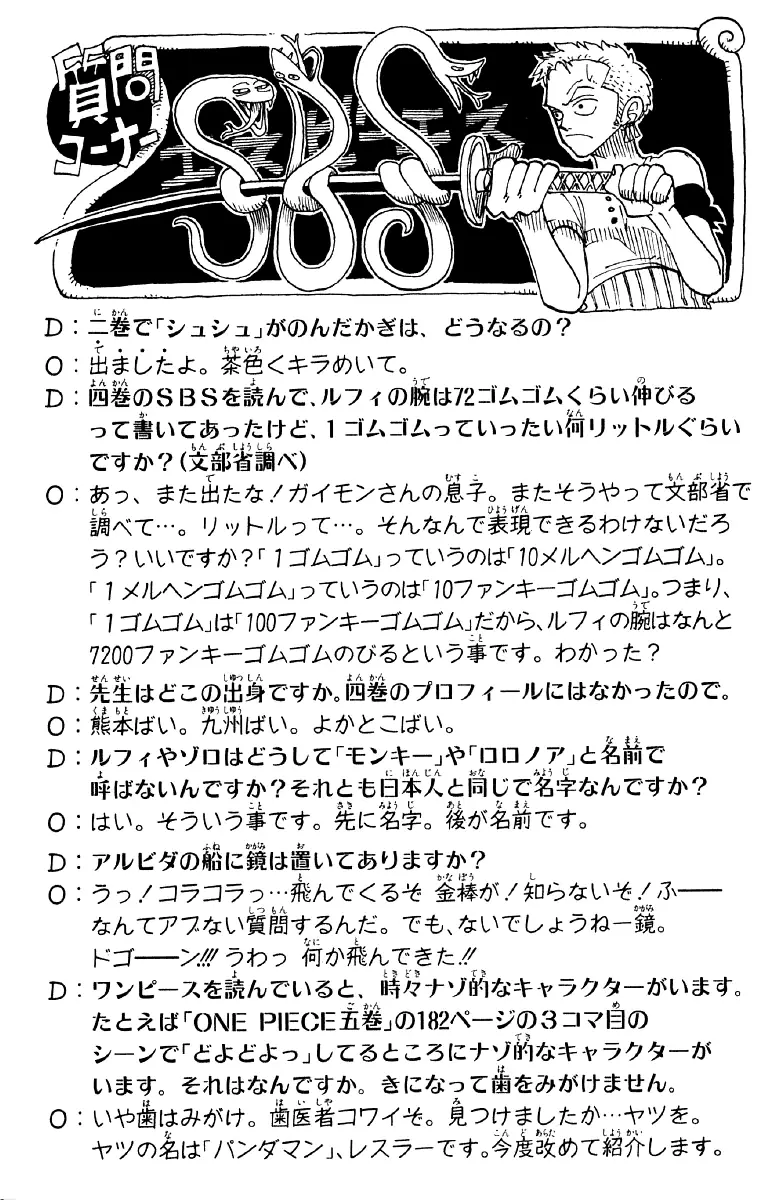 質問
コーナー
SBS
エスビーエス
D：二巻で「シュシュ」がのんだかぎは、どうなるの？
O：出ましたよ。茶色くキラめいて。
D：四巻のSBSを読んで、ルフィの腕は72ゴムゴムくらい伸びる
って書いてあったけど、1ゴムゴムっていったい何リットルぐらい
ですか？(文部省調べ)
O：あっ、また出たな！ガイモンさんの息子。またそうやって文部省で
調べて…。リットルって…。そんなんで表現できるわけないだろ
う？いいですか？「1ゴムゴム」っていうのは「10メルヘンゴムゴム」。
「1メルヘンゴムゴム」っていうのは「10ファンキーゴムゴム」。つまり、
「1ゴムゴム」は「100ファンキーゴムゴム」だから、ルフィの腕はなんと
7200ファンキーゴムゴムのびるという事です。わかった？
D：先生はどこの出身ですか。四巻のプロフィールにはなかったので。
O：熊本ばい。九州ばい。よかとこばい。
D：ルフィやゾロはどうして「モンキー」や「ロロノア」と名前で
呼ばないんですか？それとも日本人と同じで名字なんですか？
O：はい。そういう事です。先に名字。後が名前です。
D：アルビダの船に鏡は置いてありますか？
O：うっ！コラコラっ…飛んでくるぞ 金棒が！知らないぞ！ふー――
なんてアブない質問するんだ。でも、ないでしょうねー鏡。
ドゴー――ン!!! うわっ 何か飛んできた!!
D：ワンピースを読んでいると、時々ナゾ的なキャラクターがいます。
たとえば「ONE PIECE五巻」の182ページの3コマ目の
シーンで「どよどよっ」してるところにナゾ的なキャラクターが
います。それはなんですか。きになって歯をみがけません。
O：いや歯はみがけ。歯医者コワイぞ。見つけましたか…ヤツを。
ヤツの名は「パンダマン」、レスラーです。今度改めて紹介します。